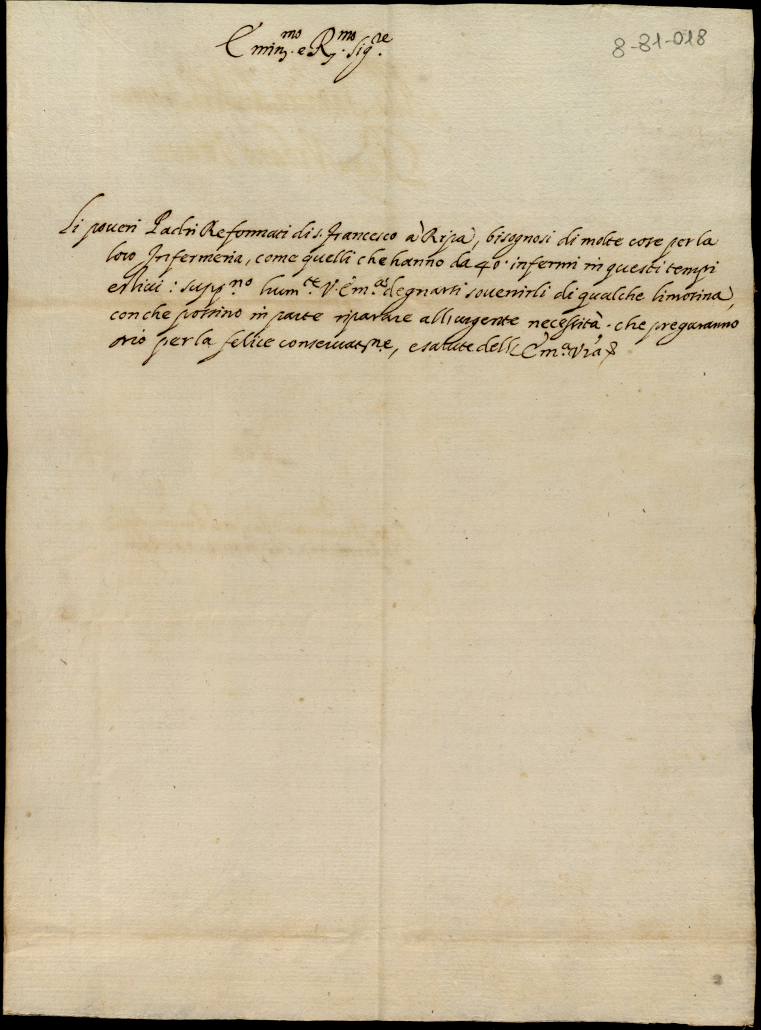 Emin.mo e R.mo Sig.re
8-81-018
Li poueri Padri Reformati di s. francesco à Ripa, bisognosi di molte cose per la
loro Infermeria, come quelli che hanno da 40. infermi in questi tempi
estiui: supp.no hum.te V. Em.a degnarsi souenirli di qualche limosina,
con che possino in parte riparare all'urgente necessità. che pregaranno
Dio per la felice conseruat.ne, e salute dell' Em.a Vra